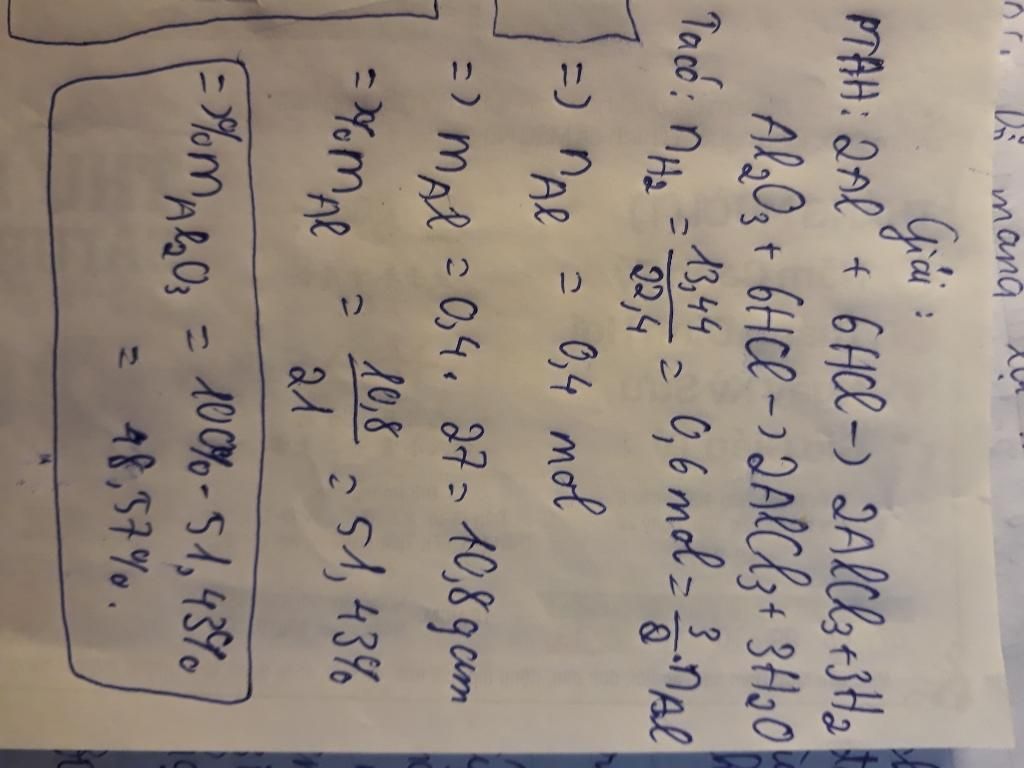 Giải:
PTHH: 2Al + 6HCl -> 2AlCl₃ + 3H₂
Al₂O₃ + 6HCl -> 2AlCl₃ + 3H₂O
Ta có: n H₂ = 13,44/22,4 = 0,6 mol = 3/2 . n Al
=> n Al = 0,4 mol
=> m Al = 0,4 . 27 = 10,8 gam
=> % m Al = 10,8/21 = 51,43%
=> % m Al₂O₃ = 100% - 51,43%
= 48,57%.